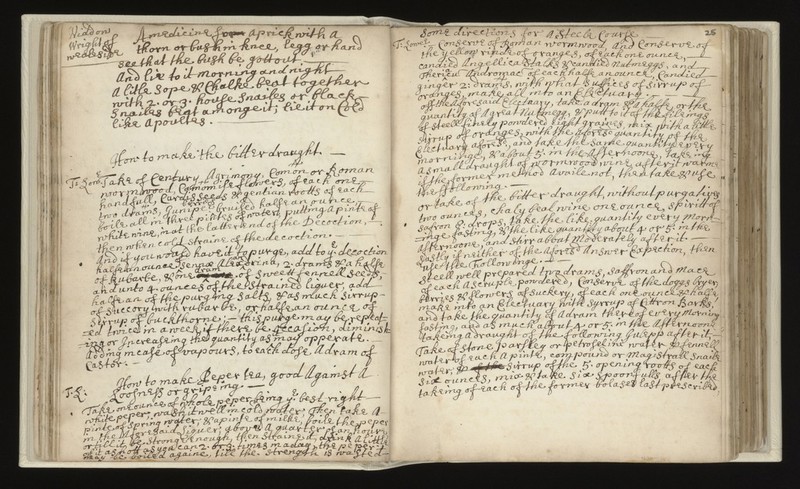 Widdow
Wright of
A medicine for a prick with a
thorn or bush in knee, legg or hand
see that the bush be gott out.
And lie to it morning and night
A litle Sope & Chalke beat together
with 2. or 3. house Snailes or black
Snailes beat amongst it; tie it on Cold
like a poultes.
How to make the bitter draught.
Take of Century, Agrimony, Comon or Roman
wormwood, Camomile flowers, of each one
handfull, Cardus seeds & gentian roots of each
two drams, Juniper berries bruised half an ounce,
boile all in three pintes of water, putting a pinte of
white wine, in at the latter end of the Decoction,
then when cold straine of the decoction.
And if you would have it to purge, add to ye decoction
half an ounce of Senna Alexandrina, 2 drams & a half
of Rubarbe, & one dram of Sweet fennell Seeds,
and unto 4 ounces of the strained liquer, add
half an of the purging Salts, & as much Sirrup
of Succory with rubarbe, or half an ounce of
Sirrup of buckthorne. this purge may be repeat
ed twice in a week, if there be occasion, diminish
ing or Increasing the quantity as may opperate.
Adding in case of vapours, to each dose, A dram of
Castor.
How to make Peper tea, good Against A
Loosness or griping.
Take an ounce of whole peper, being ye best, right
white peper, wash it well in cold water, then take A
pinte of Spring water, & a pinte of milke, boile the peper
in the aforesaid liquer, about A quarter of an hour,
or till it be Strong enough, then Strain it, drink A little
of it as hott as you can 2. or 3. times in a day, the peper
may be boiled againe, till the strength is wasted
26
Some directions for A Steele Course
Conserve of Roman wormwood, And Conserve of
the yellow rinde of oranges, of each one ounce,
Candied Angellica Stalks & Candied Nutmeggs, and
Andromac of each half an ounce, Candied
ginger 2: drams, with what Suffices of Sirrup of
oranges, make all into an Electuary.
of the aforesaid Electuary, take a dram & a half, or the
quantity of A great Nutmegg, & putt to it of the filings
of Steel finely powdered eight graines, mix with a little
Sirrup of oranges, with the aforesd quantity of the
Electuary aforesd, and take the same quantity every
morninge, & about 5 in the Afternoone, taking
A small draught of wormwood wine after it warme
if the former method Availe not, then take & use
the following.
or take of the bitter draught, without purgatives
two ounces, Chalybeal wine one ounce, Spirritt of
Saffron 6. drops, take the like quantity every morn
inge fasting, & the like quantity about 4 or 5: in the
Afternoone, and stirr about Moderately after it
Lastly if neither of the Afores Answer Expection, then
use the Following.
Steell well prepared two drams, Saffron and Mace
of each A scruple, powdered, Conserve of the doges bryer
berries & flowers of Suckery, of each one ounce & half,
make into an Electuary with Syrrup of Cittron Barks,
and take the quantity of A dram there of every Morning
fasting, and as much about 4 or 5: in the Afternoone
taking A draught of the following Julep after it,
Take of stone parsley or petroseline water & fennell
water of each A pinte, compound or Magistrall Snaile
water, & Sirrup of the 5: opening roots of each
Six ounces, mix & take six Spoonfulls after the
taking of each of the former boluses last prescribed